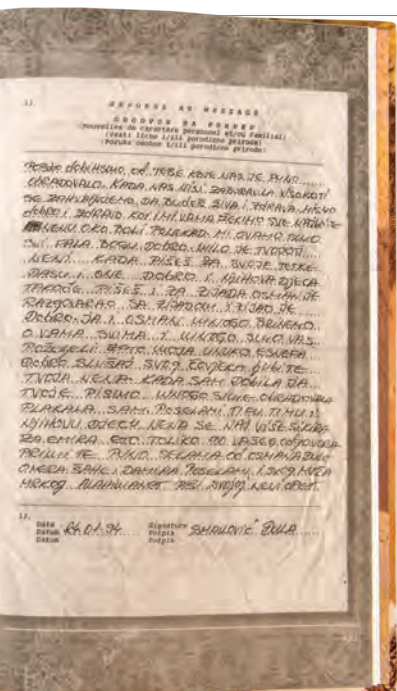 11.
REPONSE AU MESSAGE
ODGOVOR NA PORUKU
(Nouvelles de caractère personnel et/ou familial)
(Vesti lične i/ili porodične prirode)
(Poruka osobne i/ili porodične prirode)
DOBILI SMO OD TEBE KOJE NAS JE PUNO
OBRADOVALO. KADA NAS NISI ZABORAVILA VISOKO TI
SE ZAHVALJUJEMO, DA BUDEŠ ŽIVA I ZDRAVA
DOBRO I ZDRAVO KOJI MI VAMA ŽELIMO SVE NAJBOLJE
NENU OKO BOLI PONEKAD. MI OVAMO SMO
SVI FALA BOGU DOBRO. MILO JE TVOJOJ
NENI KADA PIŠEŠ ZA SVOJE TETKE
DA SU I ONE DOBRO I NJIHOVA DJECA
TAKOĐE PIŠEŠ I ZA ZIJADA OSMAN JE
RAZGOVARAO SA ZIJADOM I ZIJAD JE
DOBRO. JA I OSMAN MNOGO BRINEMO
O VAMA SVIMA I MNOGO SMO VAS
POŽELJELI. ETO MOJA UNUKO ESNEFA
DOBRO SLUŠAJ SVOG ČOVJEKA
TVOJA NENA. KADA SAM DOBILA JA
TVOJE PISMO MNOGO SAM SE OBRADOVALA
PLAKALA SAM. POSELAMI TI
NJIHOVU DJECU. NENA SE NAJVIŠE SIKIRA
ZA EMIRA. ETO TOLIKO OD VAŠEG ODGOVORA
PRIMITE PUNO SELAMA OD OSMANA
OMERA SAHE I DAMIRA POSELAMI I SVOG MUŽA
MRKOG. ALAHIMANET PIŠI SVOJOJ NENI OPET
12.
Date
Datum 24.01.94 Signature SMAILOVIĆ ĐULA
Datum Potpis
Potpis